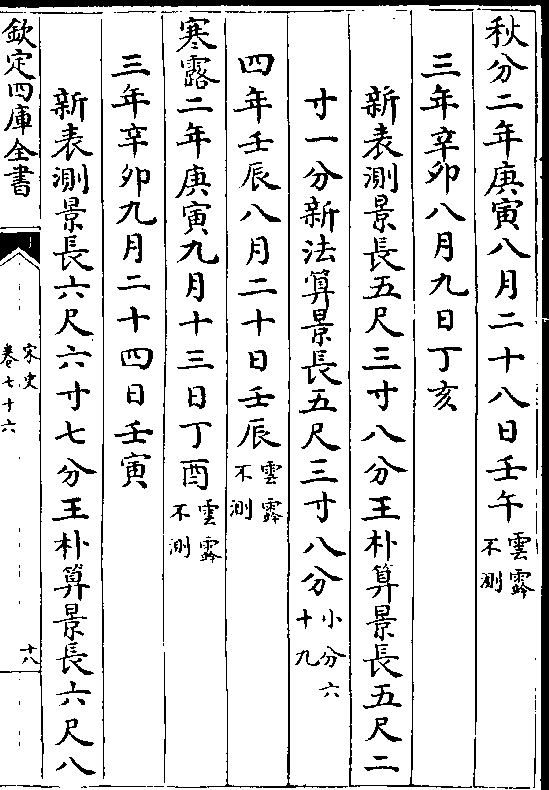 秋分二年庚寅八月二十八日壬午雲霧不測
三年辛卯八月九日丁亥
新表測景長五尺三寸八分王朴算景長五尺二
寸一分新法算景長五尺三寸八分小分六十九
四年壬辰八月二十日壬辰雲霧不測
寒露二年庚寅九月十三日丁酉雲霧不測
三年辛卯九月二十四日壬寅
新表測景長六尺六寸七分王朴算景長六尺八
欽定四庫全書
宋史
卷七十六
十八